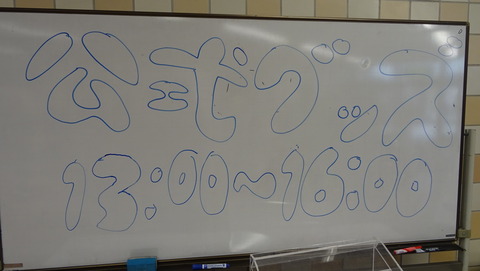 公式グッズ
13:00~16:00